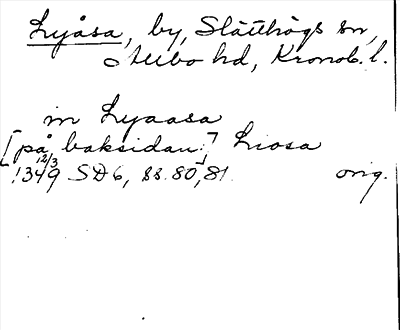 Lyåsa, by, Slätthögs sn,
Allbo hd, Kronob. l.
in Lyaasa
[på baksidan:] Liosa
12/3
1349 SD 6, ss. 80, 81. orig.